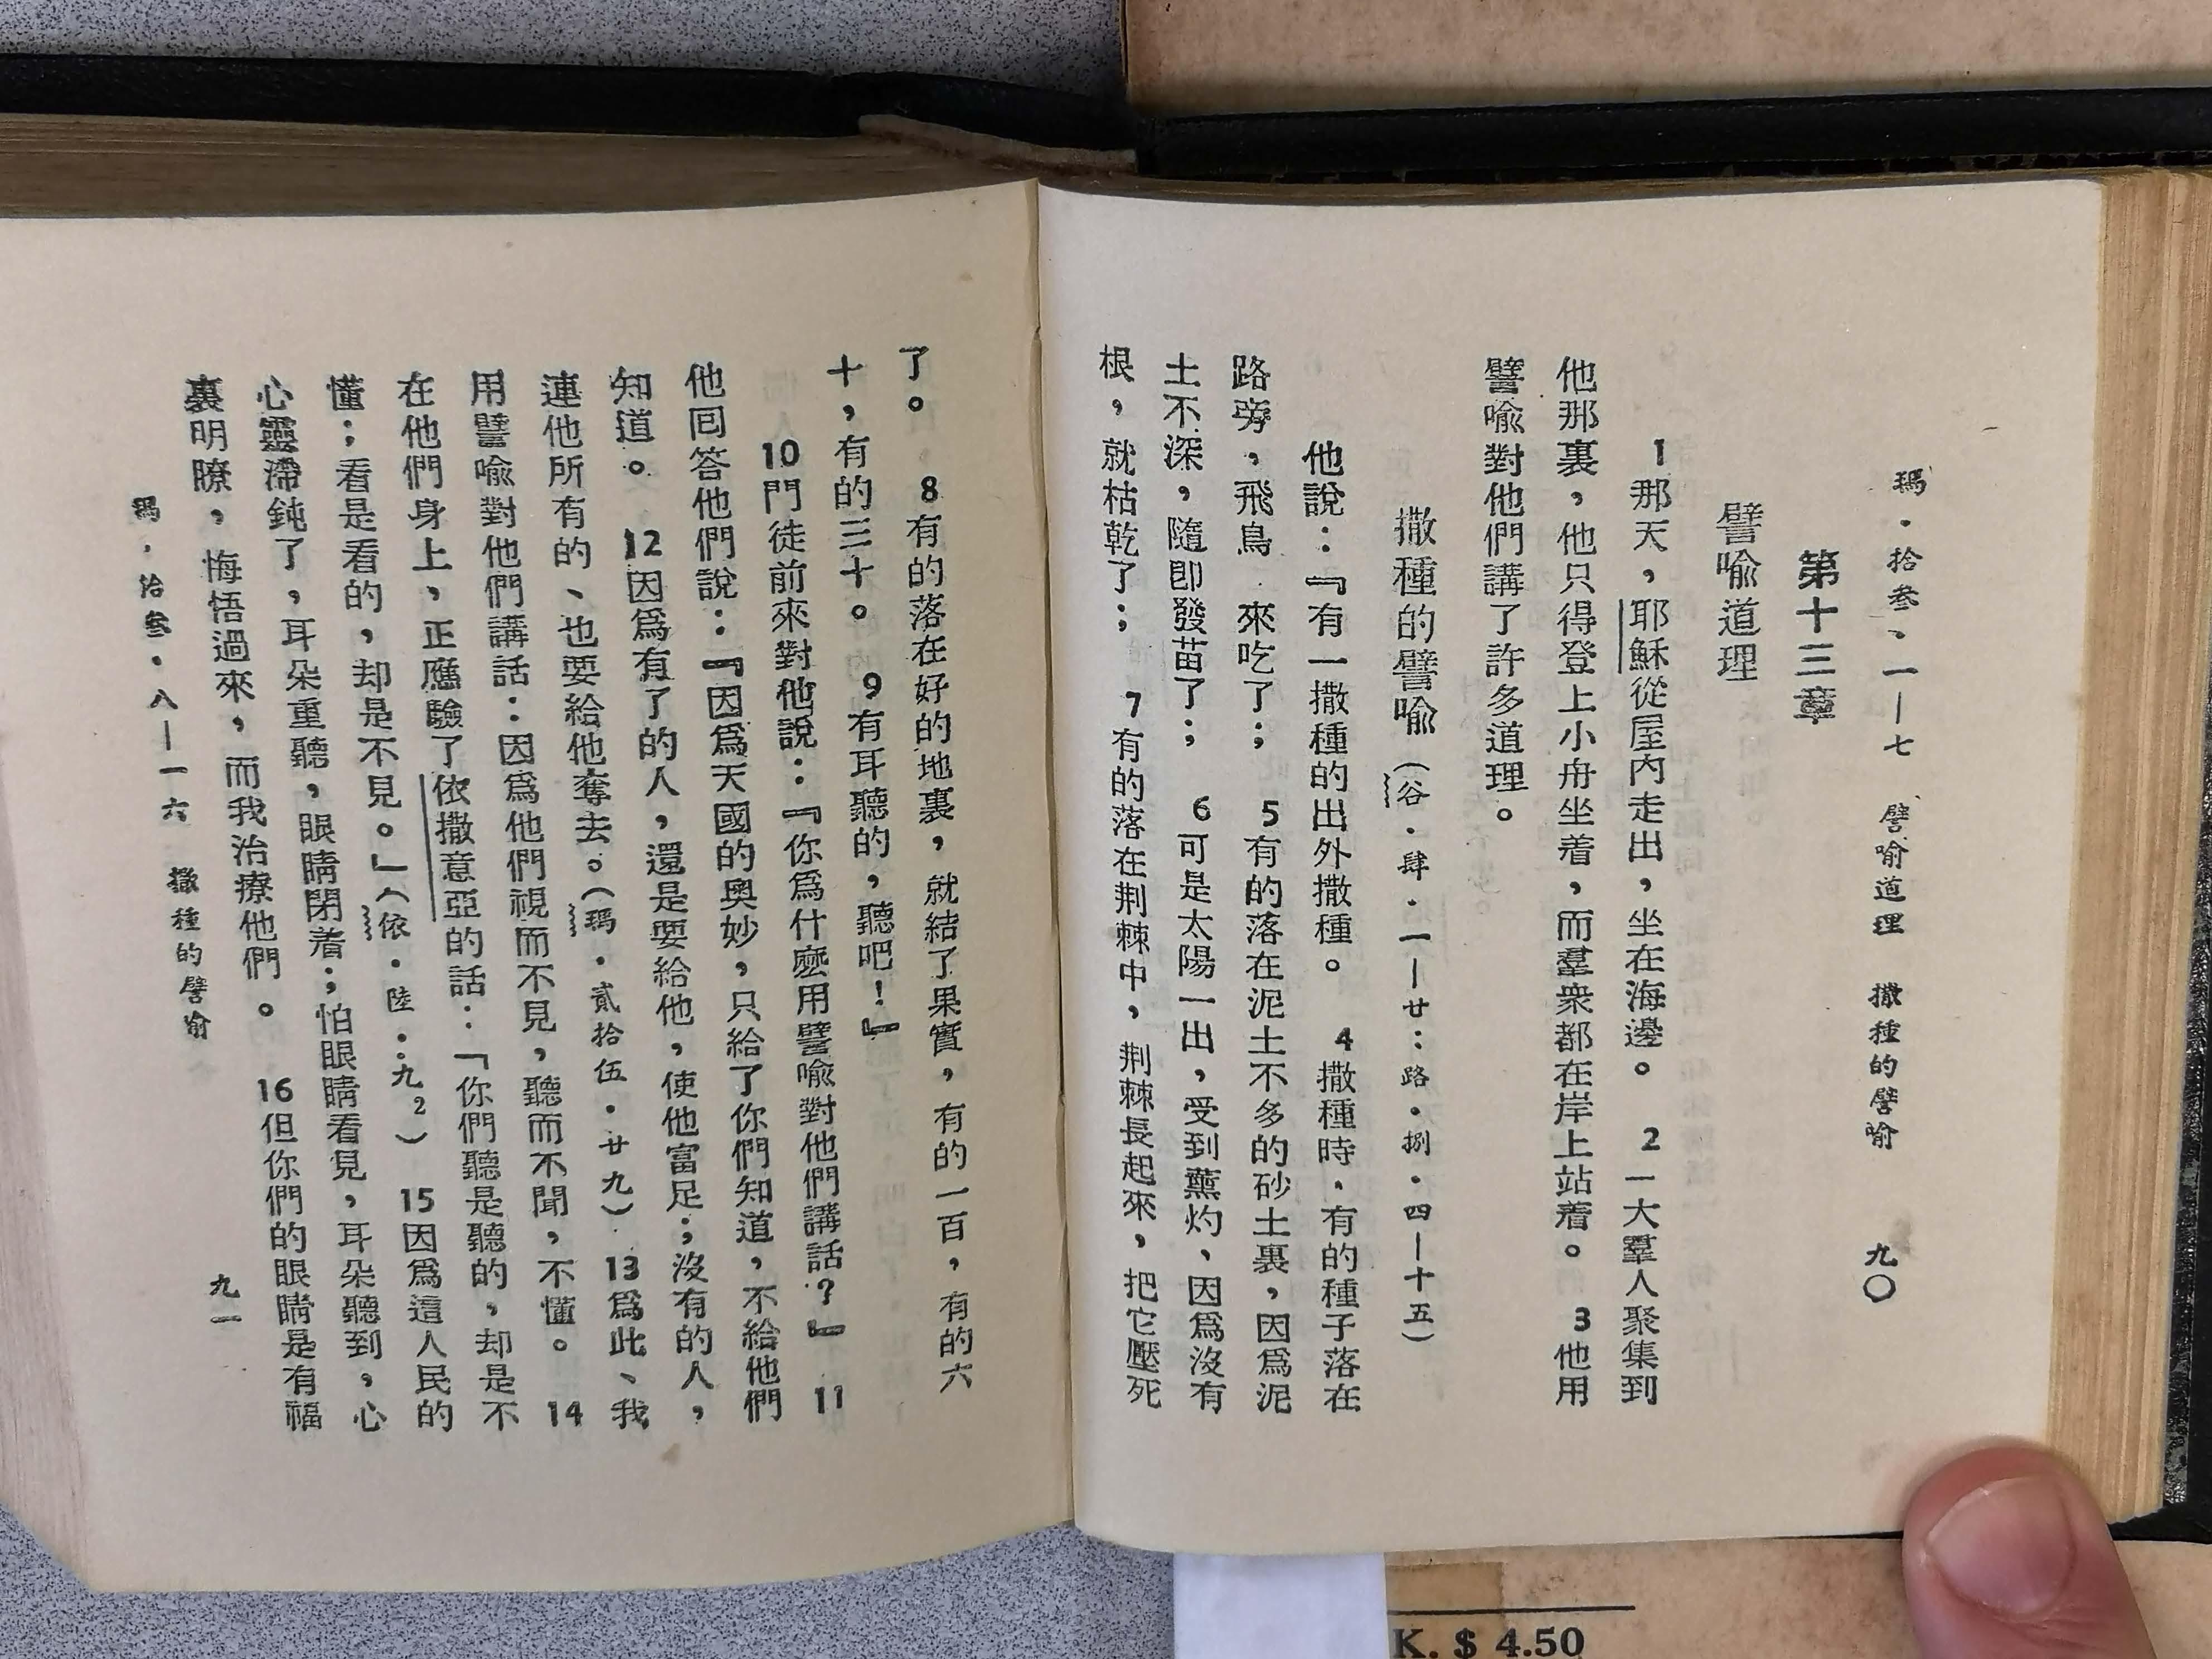 瑪．拾叁、一—七　譬喻道理　撒種的譬喻　九〇
第十三章
譬喻道理
1那天，耶穌從屋內走出，坐在海邊。　2一大羣人聚集到
他那裏，他只得登上小舟坐着，而羣衆都在岸上站着。　3他用
譬喻對他們講了許多道理。
撒種的譬喻（谷．肆．一—廿：路．捌．四—十五）
他說：『有一撒種的出外撒種。　4撒種時，有的種子落在
路旁，飛鳥　來吃了；　5有的落在泥土不多的砂土裏，因爲泥
土不深，隨即發苗了；　6可是太陽一出，受到薰灼，因爲沒有
根，就枯乾了；　7有的落在荆棘中，荆棘長起來，把它壓死
了。　8有的落在好的地裏，就結了果實，有的一百，有的六
十，有的三十。　9有耳聽的，聽吧！』
10門徒前來對他說：『你爲什麽用譬喻對他們講話？』　11
他回答他們說：『因爲天國的奧妙，只給了你們知道，不給他們
知道。　12因爲有了的人，還是要給他，使他富足；沒有的人，
連他所有的、也要給他奪去。（瑪．貳拾伍．廿九）．13爲此、我
用譬喻對他們講話：因爲他們視而不見，聽而不聞，不懂。　14
在他們身上，正應驗了依撒意亞的話：「你們聽是聽的，却是不
懂；看是看的，却是不見。」（依．陸．：九2）　15因爲這人民的
心靈滯鈍了，耳朵重聽，眼睛閉着；怕眼睛看見，耳朵聽到，心
裏明瞭，悔悟過來，而我治療他們。　16但你們的眼睛是有福
瑪．拾叁．八—一六　撒種的譬喻　九一
K. $ 4.50